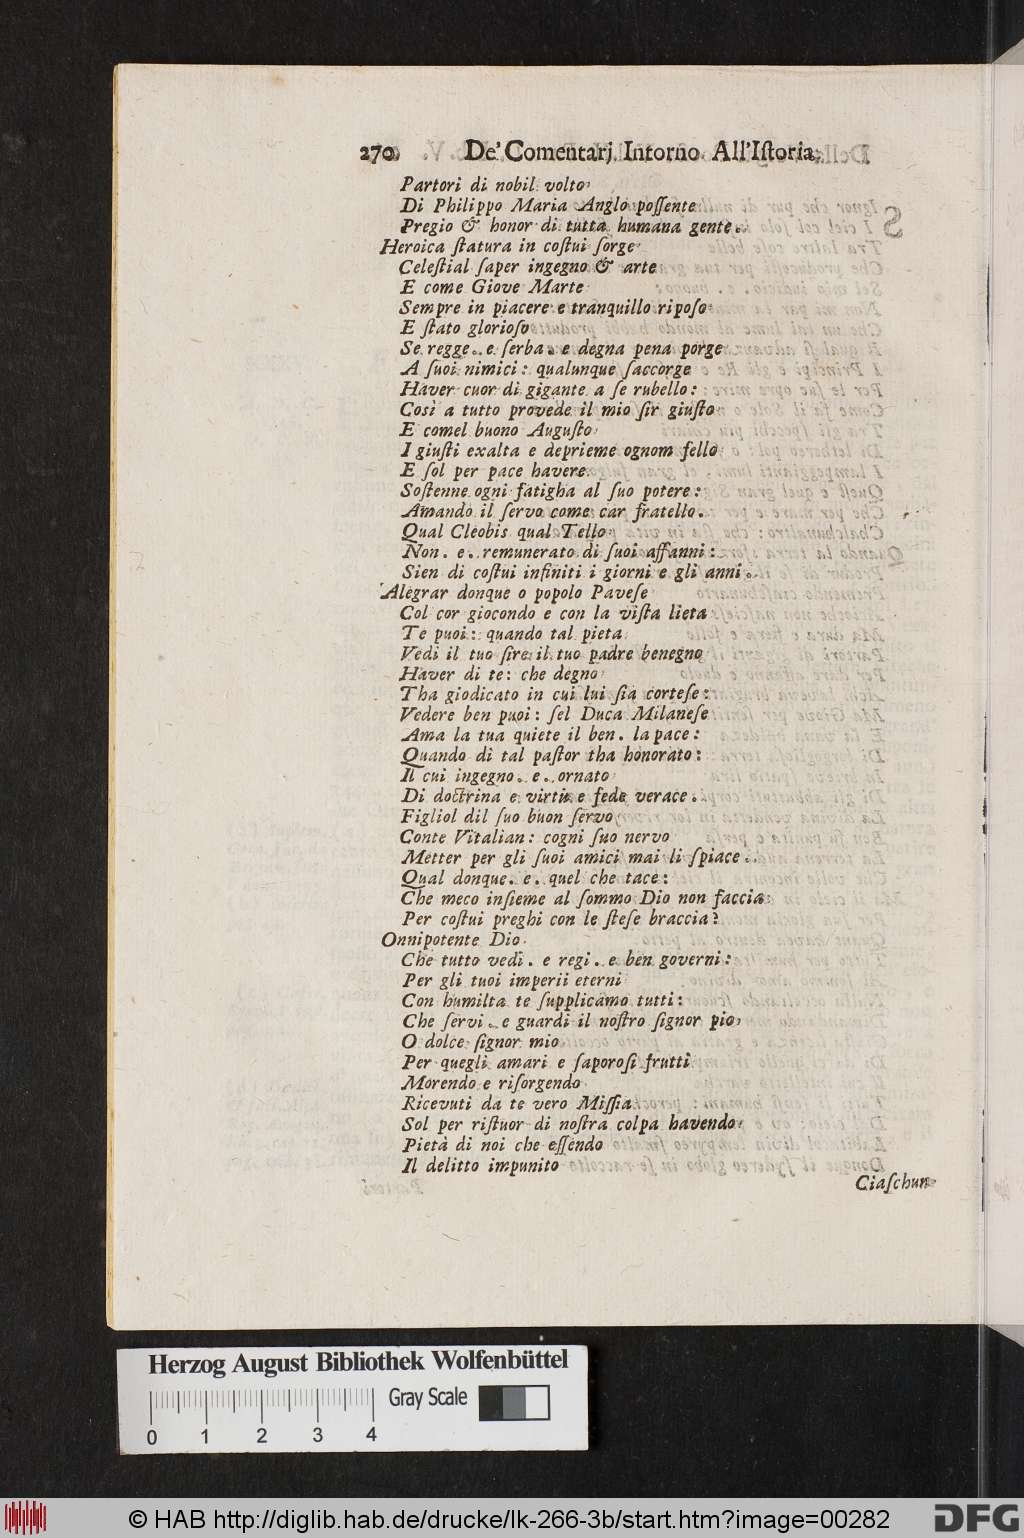 270 De' Comentarj Intorno All'Iſtoria
Partorì di nobil volto
Di Philippo Maria Anglo poſſente
Pregio & honor di tutta humana gente.
Heroica ſtatura in coſtui ſorge
Celeſtial ſaper ingegno & arte
E come Giove Marte
Sempre in piacere e tranquillo ripoſo
E ſtato glorioſo
Se regge. e ſerba. e degna pena porge
A ſuoi nimici: qualunque ſaccorge
Haver cuor di gigante a ſe rubello:
Così a tutto provede il mio ſir giuſto
E comel buono Auguſto
I giuſti exalta e deprieme ognom fello
E ſol per pace havere
Soſtenne ogni fatigha al ſuo potere:
Amando il ſervo come car fratello.
Qual Cleobis qual Tello
Non. e. remunerato di ſuoi affanni:
Sien di coſtui infiniti i giorni e gli anni.
Alegrar donque o popolo Paveſe
Col cor giocondo e con la viſta lieta
Te puoi: quando tal pieta
Vedi il tuo ſire il tuo padre benegno
Haver di te: che degno
Tha giodicato in cui lui ſia corteſe:
Vedere ben puoi: ſel Duca Milaneſe
Ama la tua quiete il ben. la pace:
Quando di tal paſtor tha honorato:
Il cui ingegno. e. ornato
Di doctrina e virtù e fede verace.
Figliol dil ſuo buon ſervo
Conte Vitalian: cogni ſuo nervo
Metter per gli ſuoi amici mai li ſpiace.
Qual donque. e. quel che tace:
Che meco inſieme al ſommo Dio non faccia
Per coſtui preghi con le ſteſe braccia?
Onnipotente Dio
Che tutto vedi. e regi. e ben governi:
Per gli tuoi imperii eterni
Con humilta te ſupplicamo tutti:
Che ſervi. e guardi il noſtro ſignor pio
O dolce ſignor mio
Per quegli amari e ſaporoſi frutti
Morendo e riſorgendo
Ricevuti da te vero Miſſia
Sol per riſtuor di noſtra colpa havendo
Pietà di noi che eſſendo
Il delitto impunito
Ciaſchun
Herzog August Bibliothek Wolfenbüttel
Gray Scale
0 1 2 3 4
© HAB http://diglib.hab.de/drucke/lk-266-3b/start.htm?image=00282
DFG